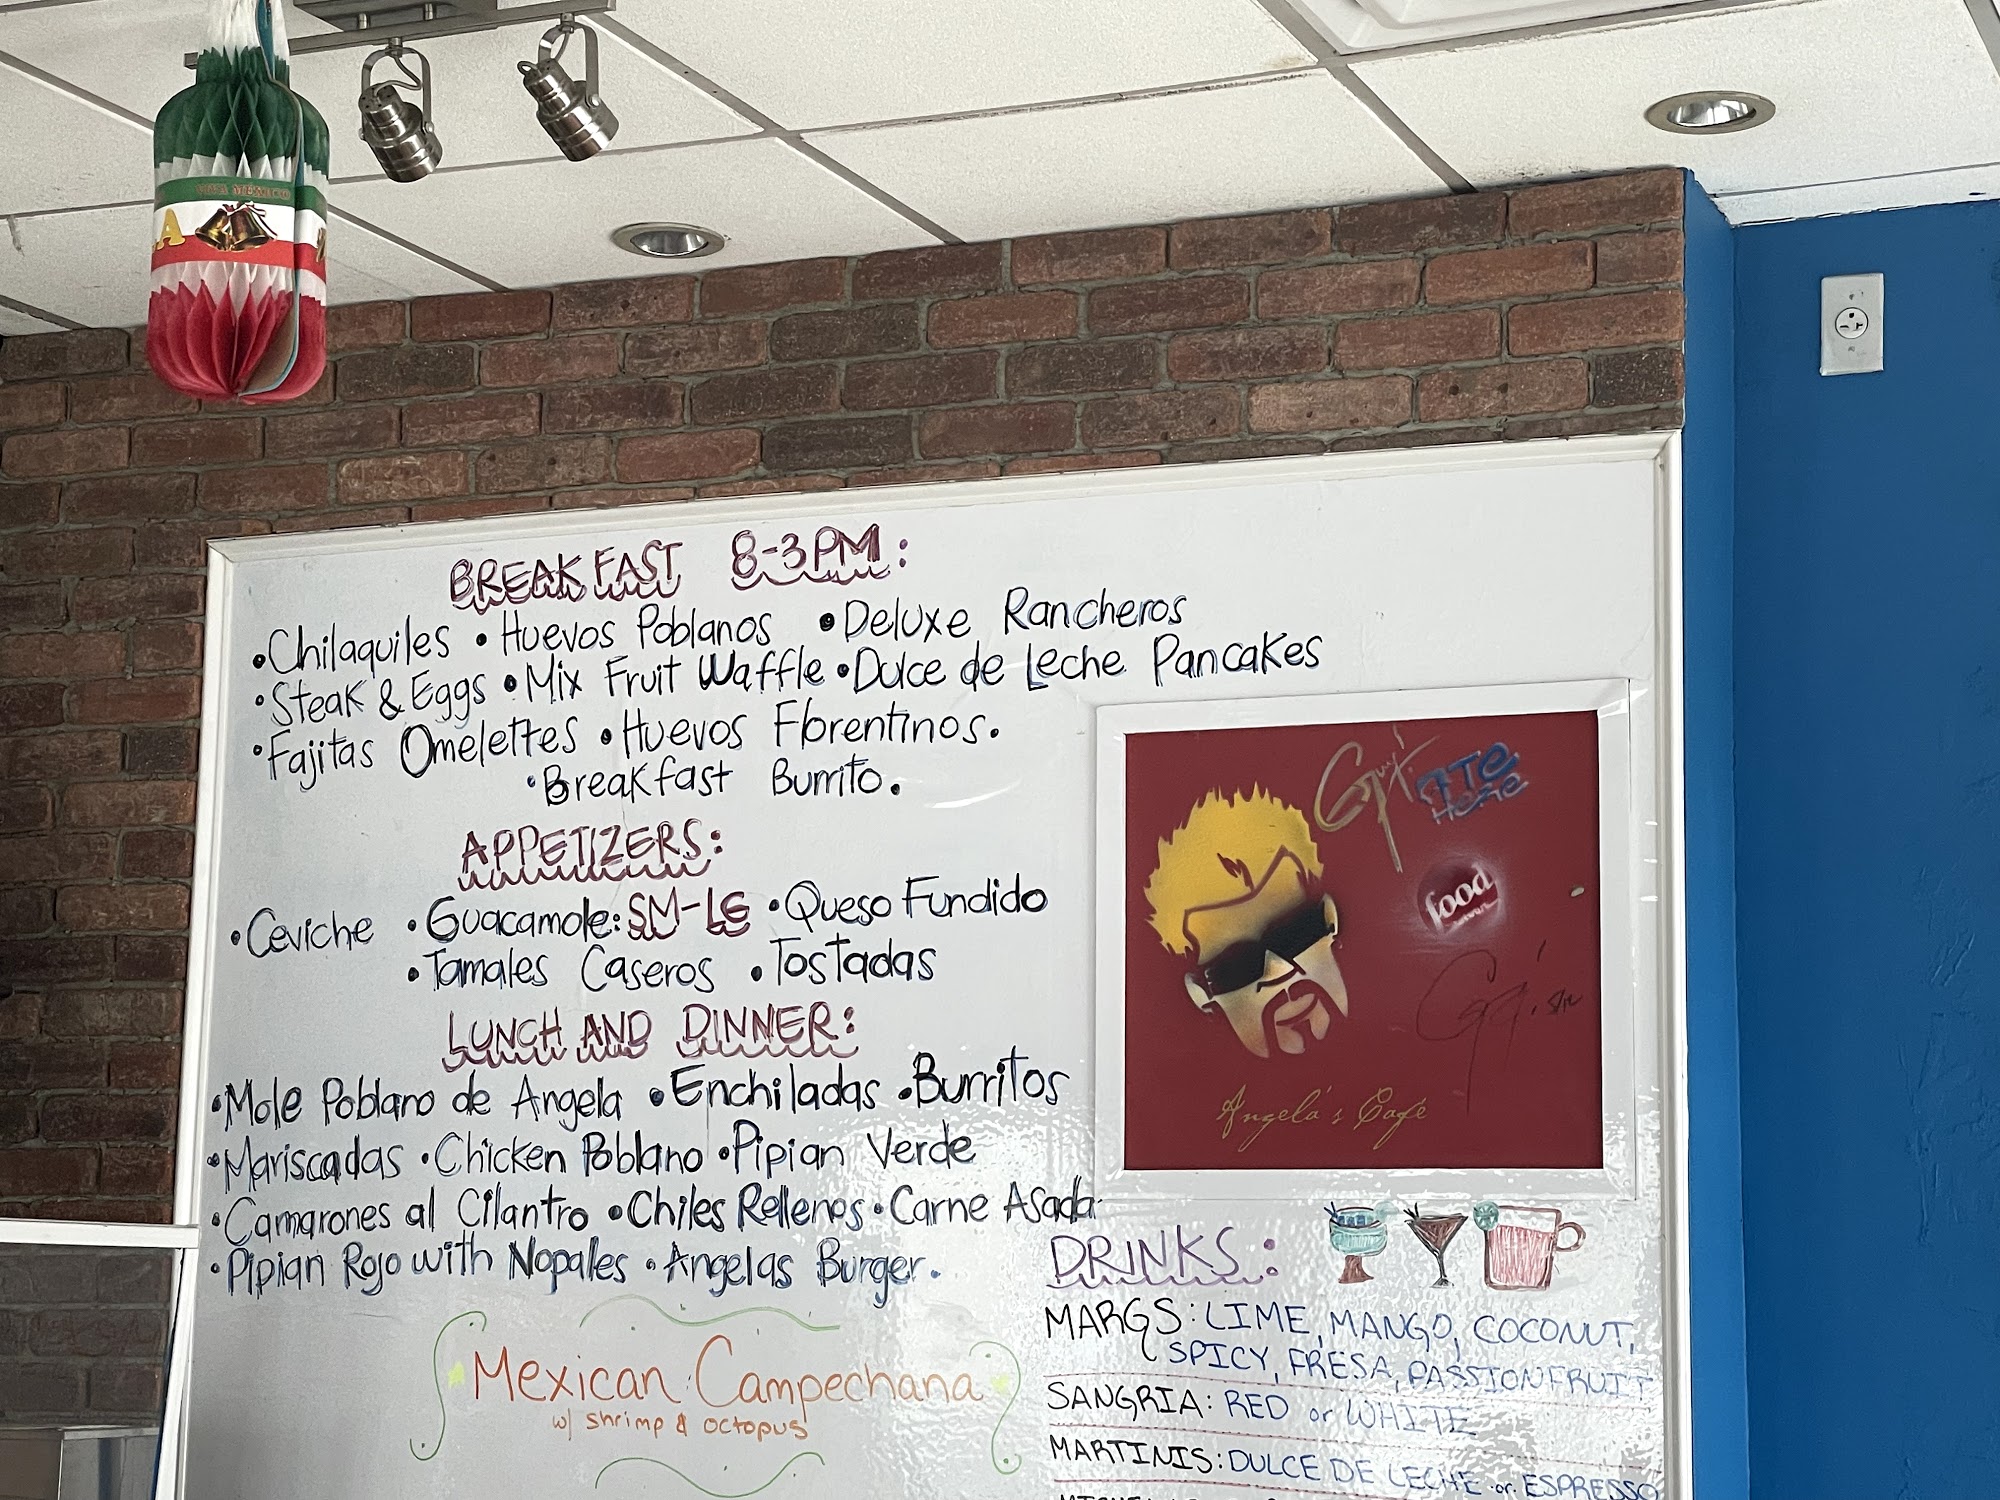 VIVA MEXICO
BREAKFAST 8-3PM:
•Chilaquiles •Huevos Poblanos •Deluxe Rancheros
•Steak & Eggs •Mix Fruit Waffle •Dulce de Leche Pancakes
•Fajitas Omelettes •Huevos Florentinos.
•Breakfast Burrito.
APPETIZERS:
•Ceviche •Guacamole: SM-LG •Queso Fundido
•Tamales Caseros •Tostadas
LUNCH AND DINNER:
•Mole Poblano de Angela •Enchiladas •Burritos
•Mariscadas •Chicken Poblano •Pipian Verde
•Camarones al Cilantro •Chiles Rellenos •Carne Asada
•Pipian Rojo with Nopales •Angelas Burger.
Mexican Campechana
w/ shrimp & octopus
Guy
ATE
HERE
food
Angela's Café
DRINKS:
MARGS: LIME, MANGO, COCONUT,
SPICY, FRESA, PASSIONFRUIT
SANGRIA: RED or WHITE
MARTINIS: DULCE DE LECHE or ESPRESSO